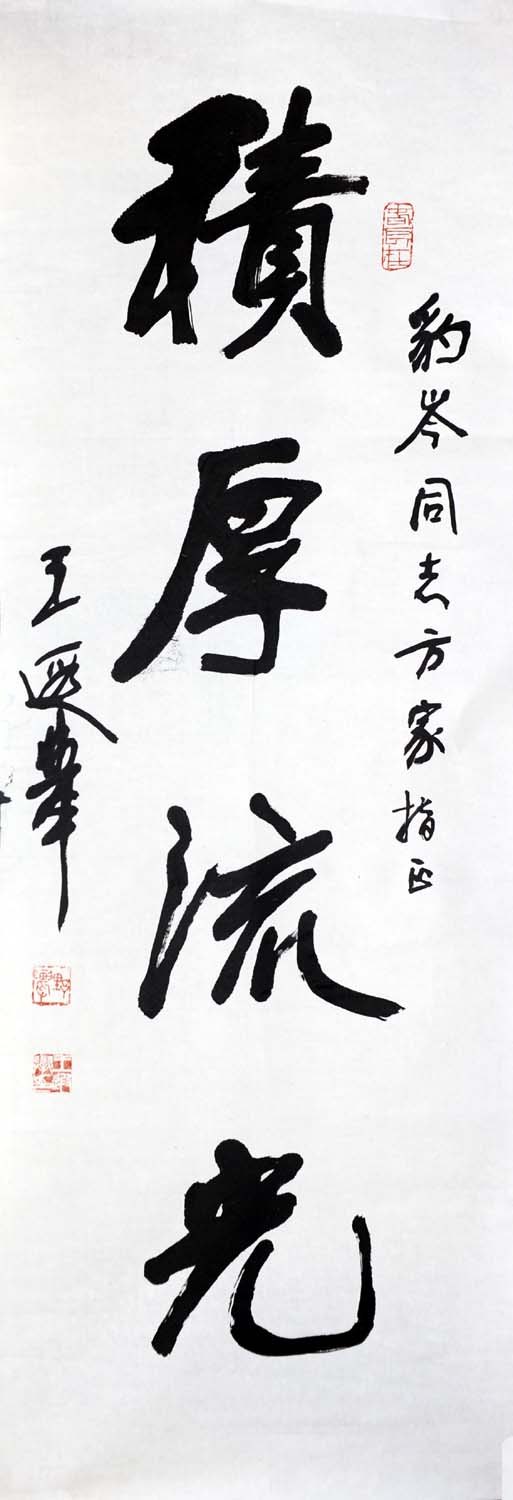 豹岑同志方家指正
積厚流光
王遐舉